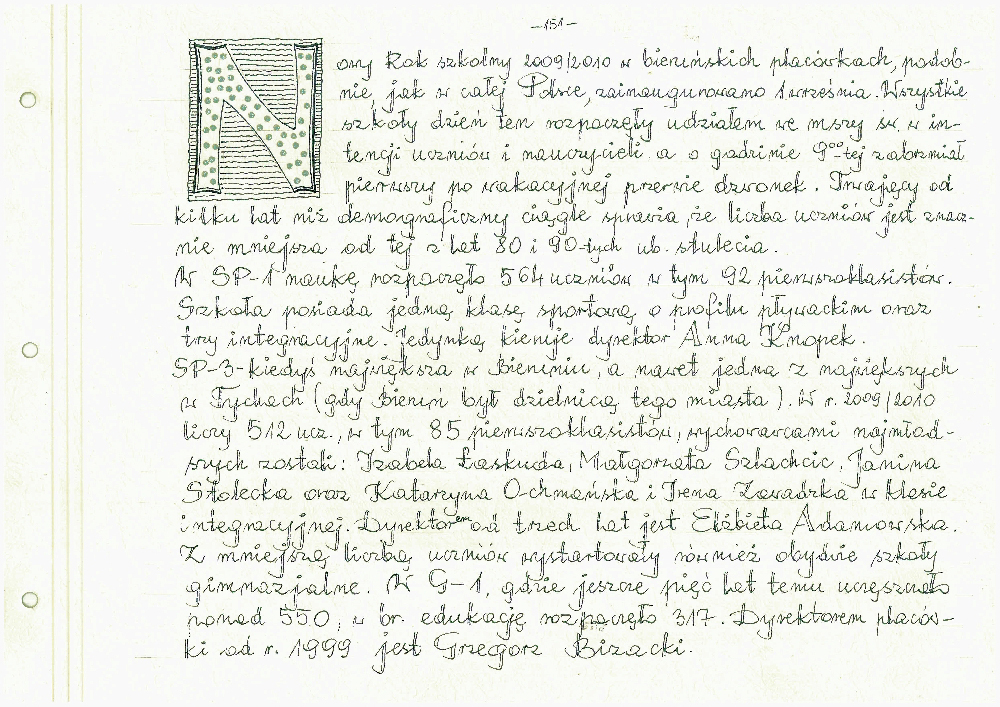 -151-
Nowy Rok szkolny 2009/2010 w bieruńskich placówkach, podob-
nie, jak w całej Polsce, zainaugurowano 1 września. Wszystkie
szkoły dzień ten rozpoczęły udziałem we mszy św. w in-
tencji uczniów i nauczycieli a o godzinie 9⁰⁰-tej zabrzmiał
pierwszy po wakacyjnej przerwie dzwonek. Trwający od
kilku lat niż demograficzny ciągle sprawia, że liczba uczniów jest znacz-
nie mniejsza od tej z lat 80 i 90-tych ub. stulecia.
W SP-1 naukę rozpoczęło 564 uczniów w tym 92 pierwszoklasistów.
Szkoła posiada jedną klasę sportową o profilu pływackim oraz
trzy integracyjne. Jedynką kieruje dyrektor Anna Knopek.
SP-3-kiedyś największa w Bieruniu, a nawet jedna z największych
w Tychach (gdy Bieruń był dzielnicą tego miasta). W r. 2009/2010
liczy 512 ucz., w tym 85 pierwszoklasistów, wychowawcami najmłod-
szych zostali: Izabela Łaskuda, Małgorzata Szlachcic, Janina
Stolecka oraz Katarzyna Ochmańska i Irena Zawadzka w klasie
integracyjnej. Dyrektorem od trzech lat jest Elżbieta Adamowska.
Z mniejszą liczbą uczniów wystartowały również obydwie szkoły
gimnazjalne. W G-1, gdzie jeszcze pięć lat temu uczęszczało
ponad 550, w br. edukację rozpoczęło 317. Dyrektorem placów-
ki od r. 1999 jest Grzegorz Bizacki.